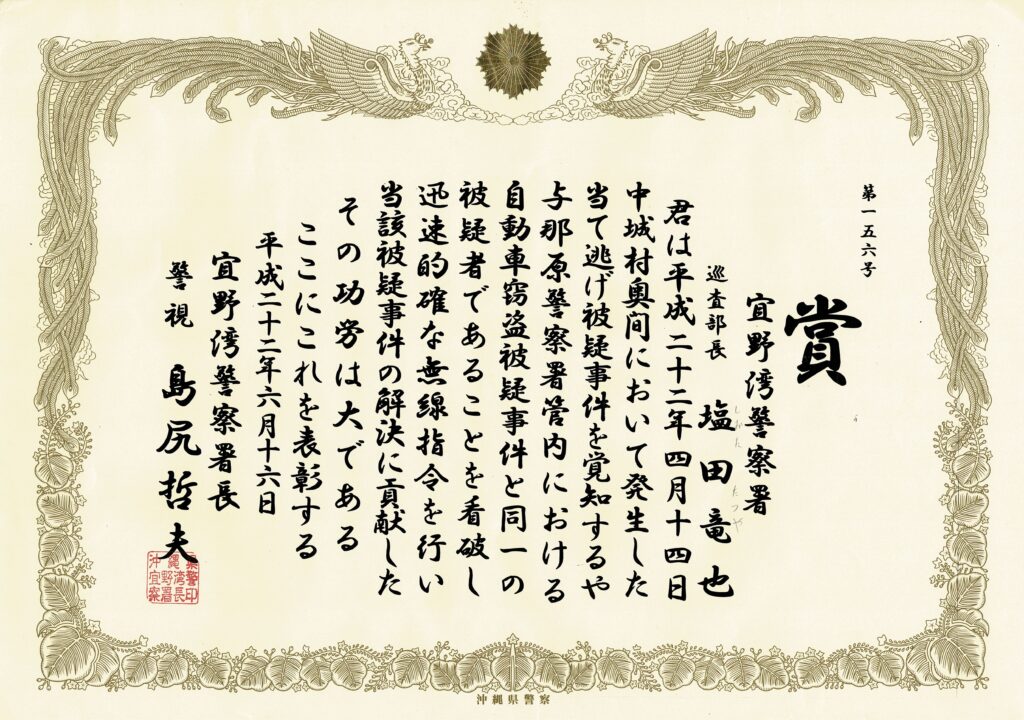 第一五六号
賞
宜野湾警察署
巡査部長 塩田竜也
しおた たつや
君は平成二十二年四月十四日
中城村奥間において発生した
当て逃げ被疑事件を覚知するや
与那原警察署管内における
自動車窃盗被疑事件と同一の
被疑者であることを看破し
迅速的確な無線指令を行い
当該被疑事件の解決に貢献した
その功労は大である
ここにこれを表彰する
平成二十二年六月十六日
宜野湾警察署長
警視 島尻哲夫
沖縄県警察